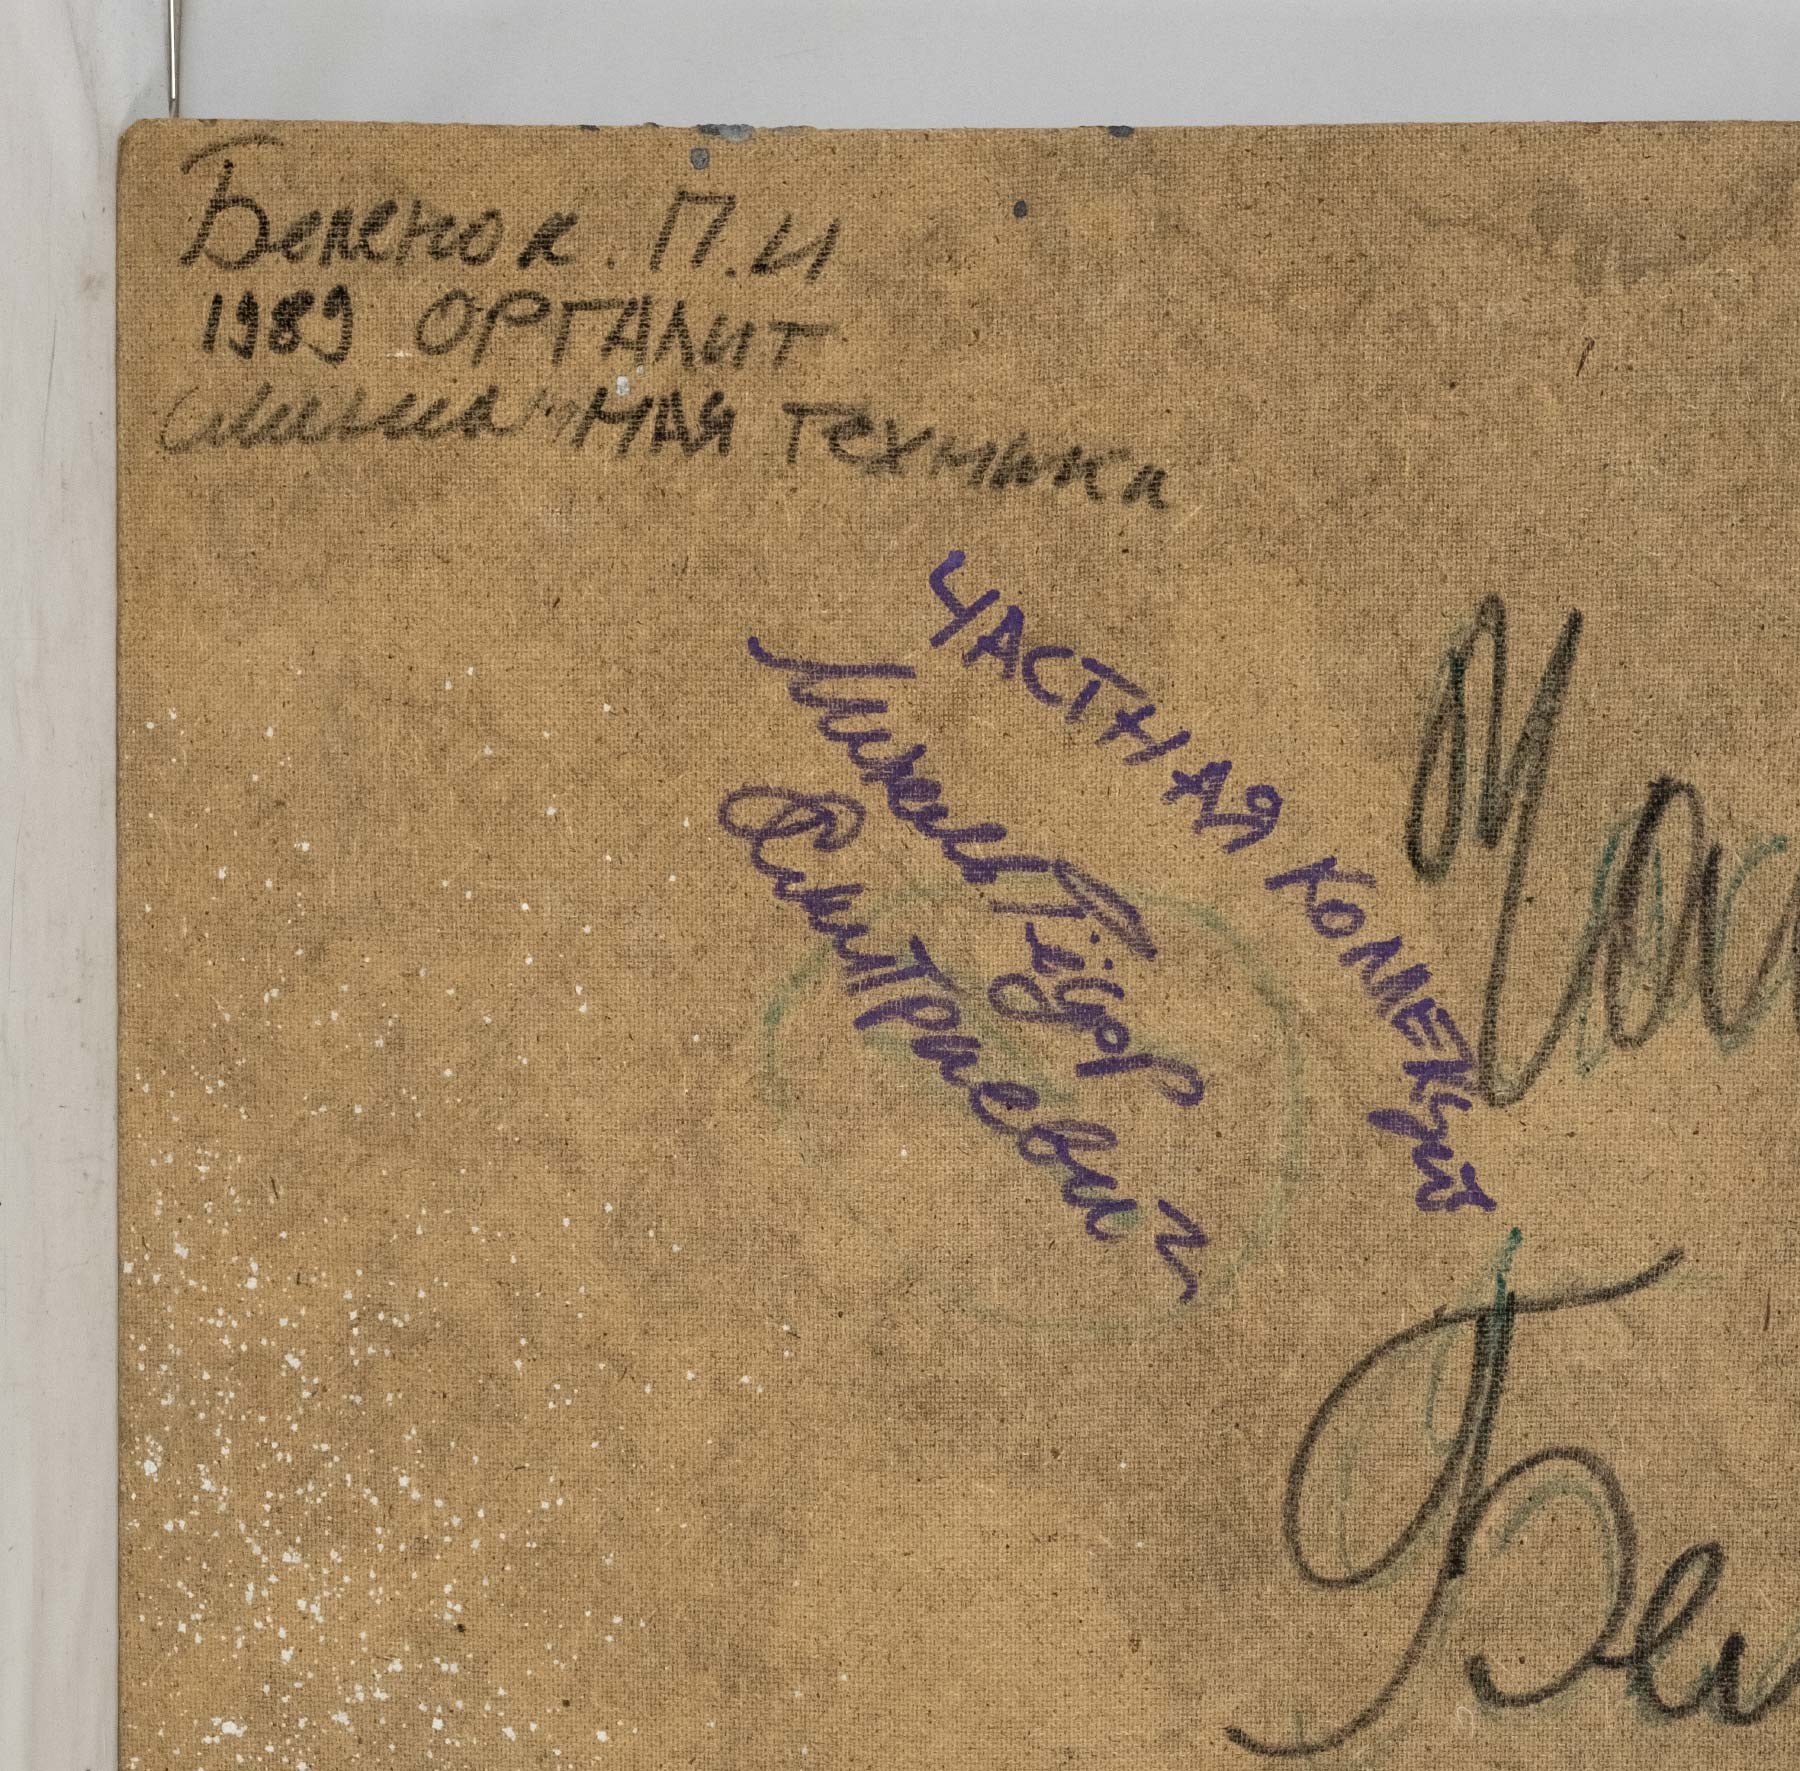 Беленок. П.И
1989 ОРГАЛИТ
смешанная техника
ЧАСТНАЯ КОЛЛЕКЦИЙ
Михалев Фёдор
Дмитриевич
Час
Бел